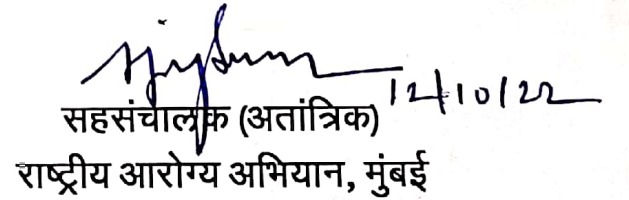 12/10/22
सहसंचालक (अतांत्रिक)
राष्ट्रीय आरोग्य अभियान, मुंबई